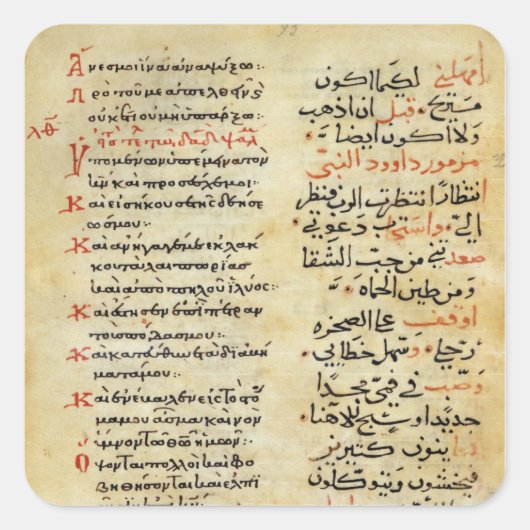 93
Ἄνες μοι ἵνα ἀναψύξω:
Πρὸ τοῦ με ἀπελθεῖν καὶ
οὐκέτι οὐ μὴ ὑπάρξω:
λθ
Εἰς τὸ τέλος τῷ δαδ ψαλ
Ὑπομένων ὑπέμεινα τὸν
κν καὶ προσέσχε μοι:
Καὶ εἰσήκουσε τῆς δεήσε
ώς μου:
Καὶ ἀνήγαγέ με ἐκ λάκ
κου ταλαιπωρίας
καὶ ἀπὸ πηλοῦ ἰλύος:
Καὶ ἔστησεν ἐπὶ πέτραν
τοὺς πόδας μου:
Καὶ κατεύθυνε τὰ διαβή
ματά μου:
Καὶ ἐνέβαλεν εἰς τὸ στό
μα μου ἆσμα καινὸν
ὕμνον τῷ θῷ ἡμῶν:
Ὄψονται πολλοὶ καὶ φο
βηθήσονται καὶ ἐλπι
امهلني لكيما اكون
مستريح قبل ان اذهب
ولا اكون ايضا
مزمور داوود النبي
انتظارا انتظرت الرب فنظر
الي واستجب دعوتي
صعدني من جب الشقا
ومن طين الحماه
اوقف على الصخره
رجلي وسهل خطاي
وصب في فمي مجدا
جديدا وسبح لالاهنا
ينون كثيرين
فيخشون ويتوكلون